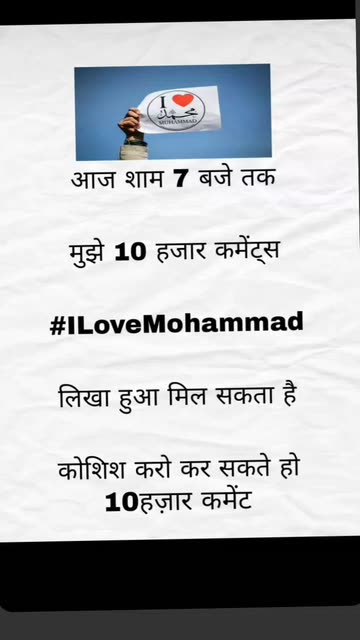 I ❤ محمد
MOHAMMAD
आज शाम 7 बजे तक
मुझे 10 हजार कमेंट्स
#ILoveMohammad
लिखा हुआ मिल सकता है
कोशिश करो कर सकते हो
10हज़ार कमेंट